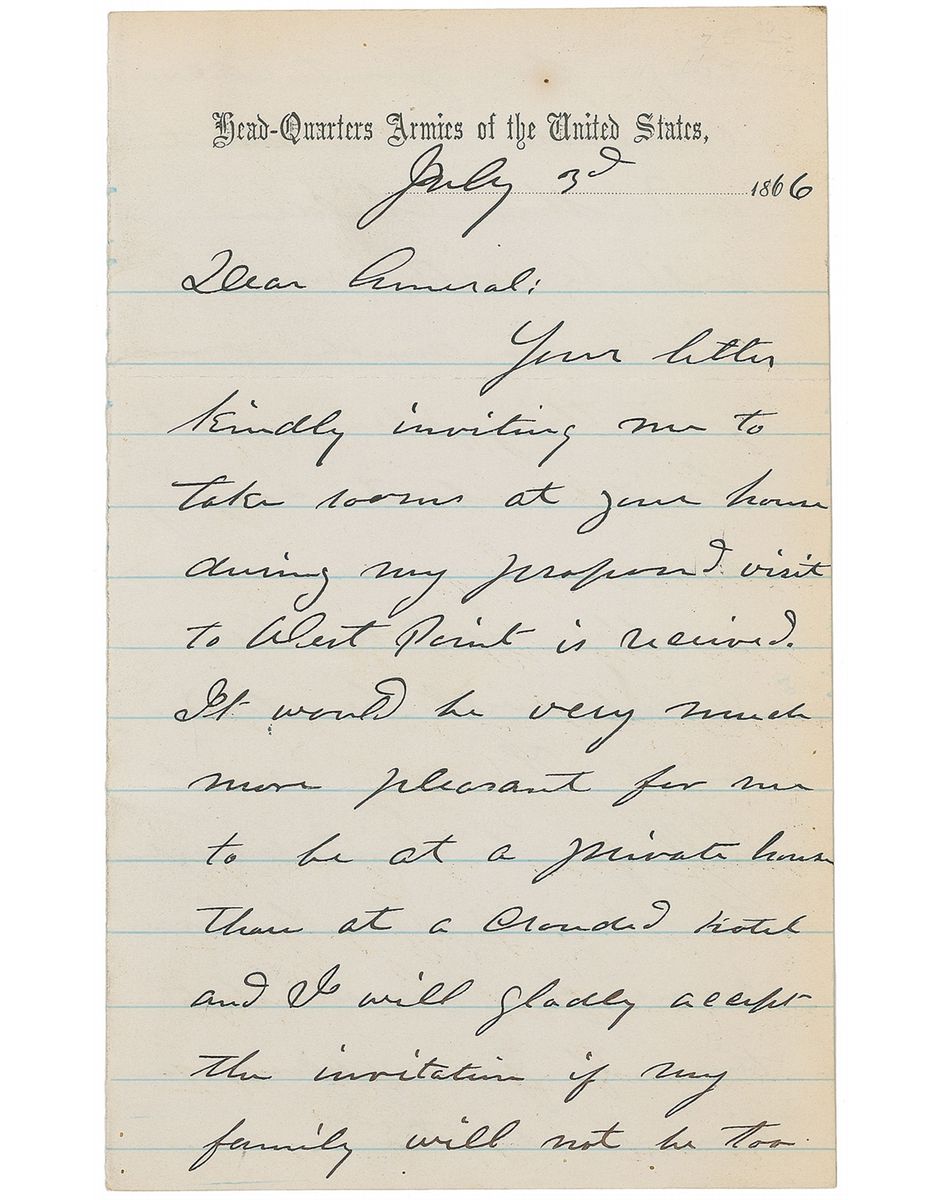 Head-Quarters Armies of the United States,
July 3d 1866
Dear General:
Your letter
kindly inviting me to
take rooms at your house
during my proposed visit
to West Point is received.
It would be very much
more pleasant for me
to be at a private house
than at a crowded hotel
and I will gladly accept
the invitation if my
family will not be too